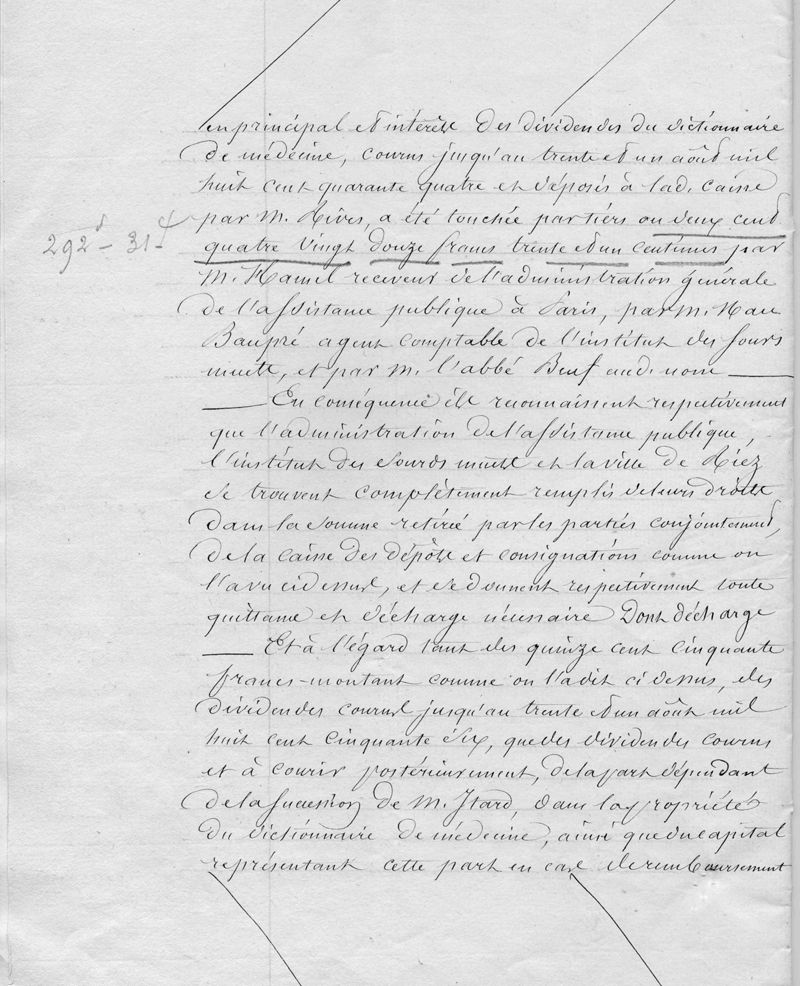 en principal et intérêts des dividendes du dictionnaire
de médecine, courus jusqu'au trente et un août mil
huit cent quarante quatre et déposés à lad. caisse
par M. Rives, a été touchée par tiers ou deux cent
292 - 31
quatre vingt douze francs trente et un centimes par
M. Hamel receveur de l'administration générale
de l'assistance publique à Paris, par M. Nau
Baupré agent comptable de l'institut des sours
muets, et par M. l'abbé Beuf aud. nom
En conséquence ils reconnaissent respectivement
que l'administration de l'assistance publique,
l'institut des sourds muets et la ville de Riez
se trouvent complétement remplis de leurs droits
dans la somme retirée par les parties conjointement,
de la caisse des dépôts et consignations comme on
l'a vu ci dessus, et se donnent respectivement toute
quittance et décharge nécessaire Dont décharge
Et à l'égard tant des quinze cent cinquante
francs montant comme on l'a dit ci dessus, des
dividendes courus jusqu'au trente et un août mil
huit cent cinquante six, que des dividendes courus
et à courir postérieurement, de la part dépendant
de la succession de M. Itard, dans la propriété
du dictionnaire de médecine, ainsi que du capital
représentant cette part en cas de remboursement